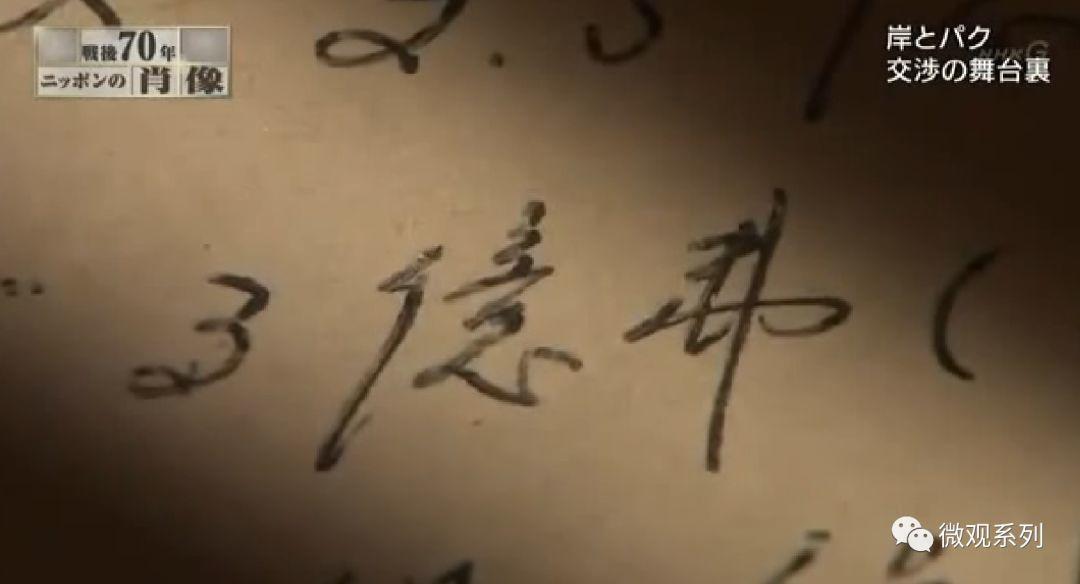 戦後70年
ニッポンの肖像
岸とパク
交渉の舞台裏
NHK G
2.5
3億弗(
微观系列